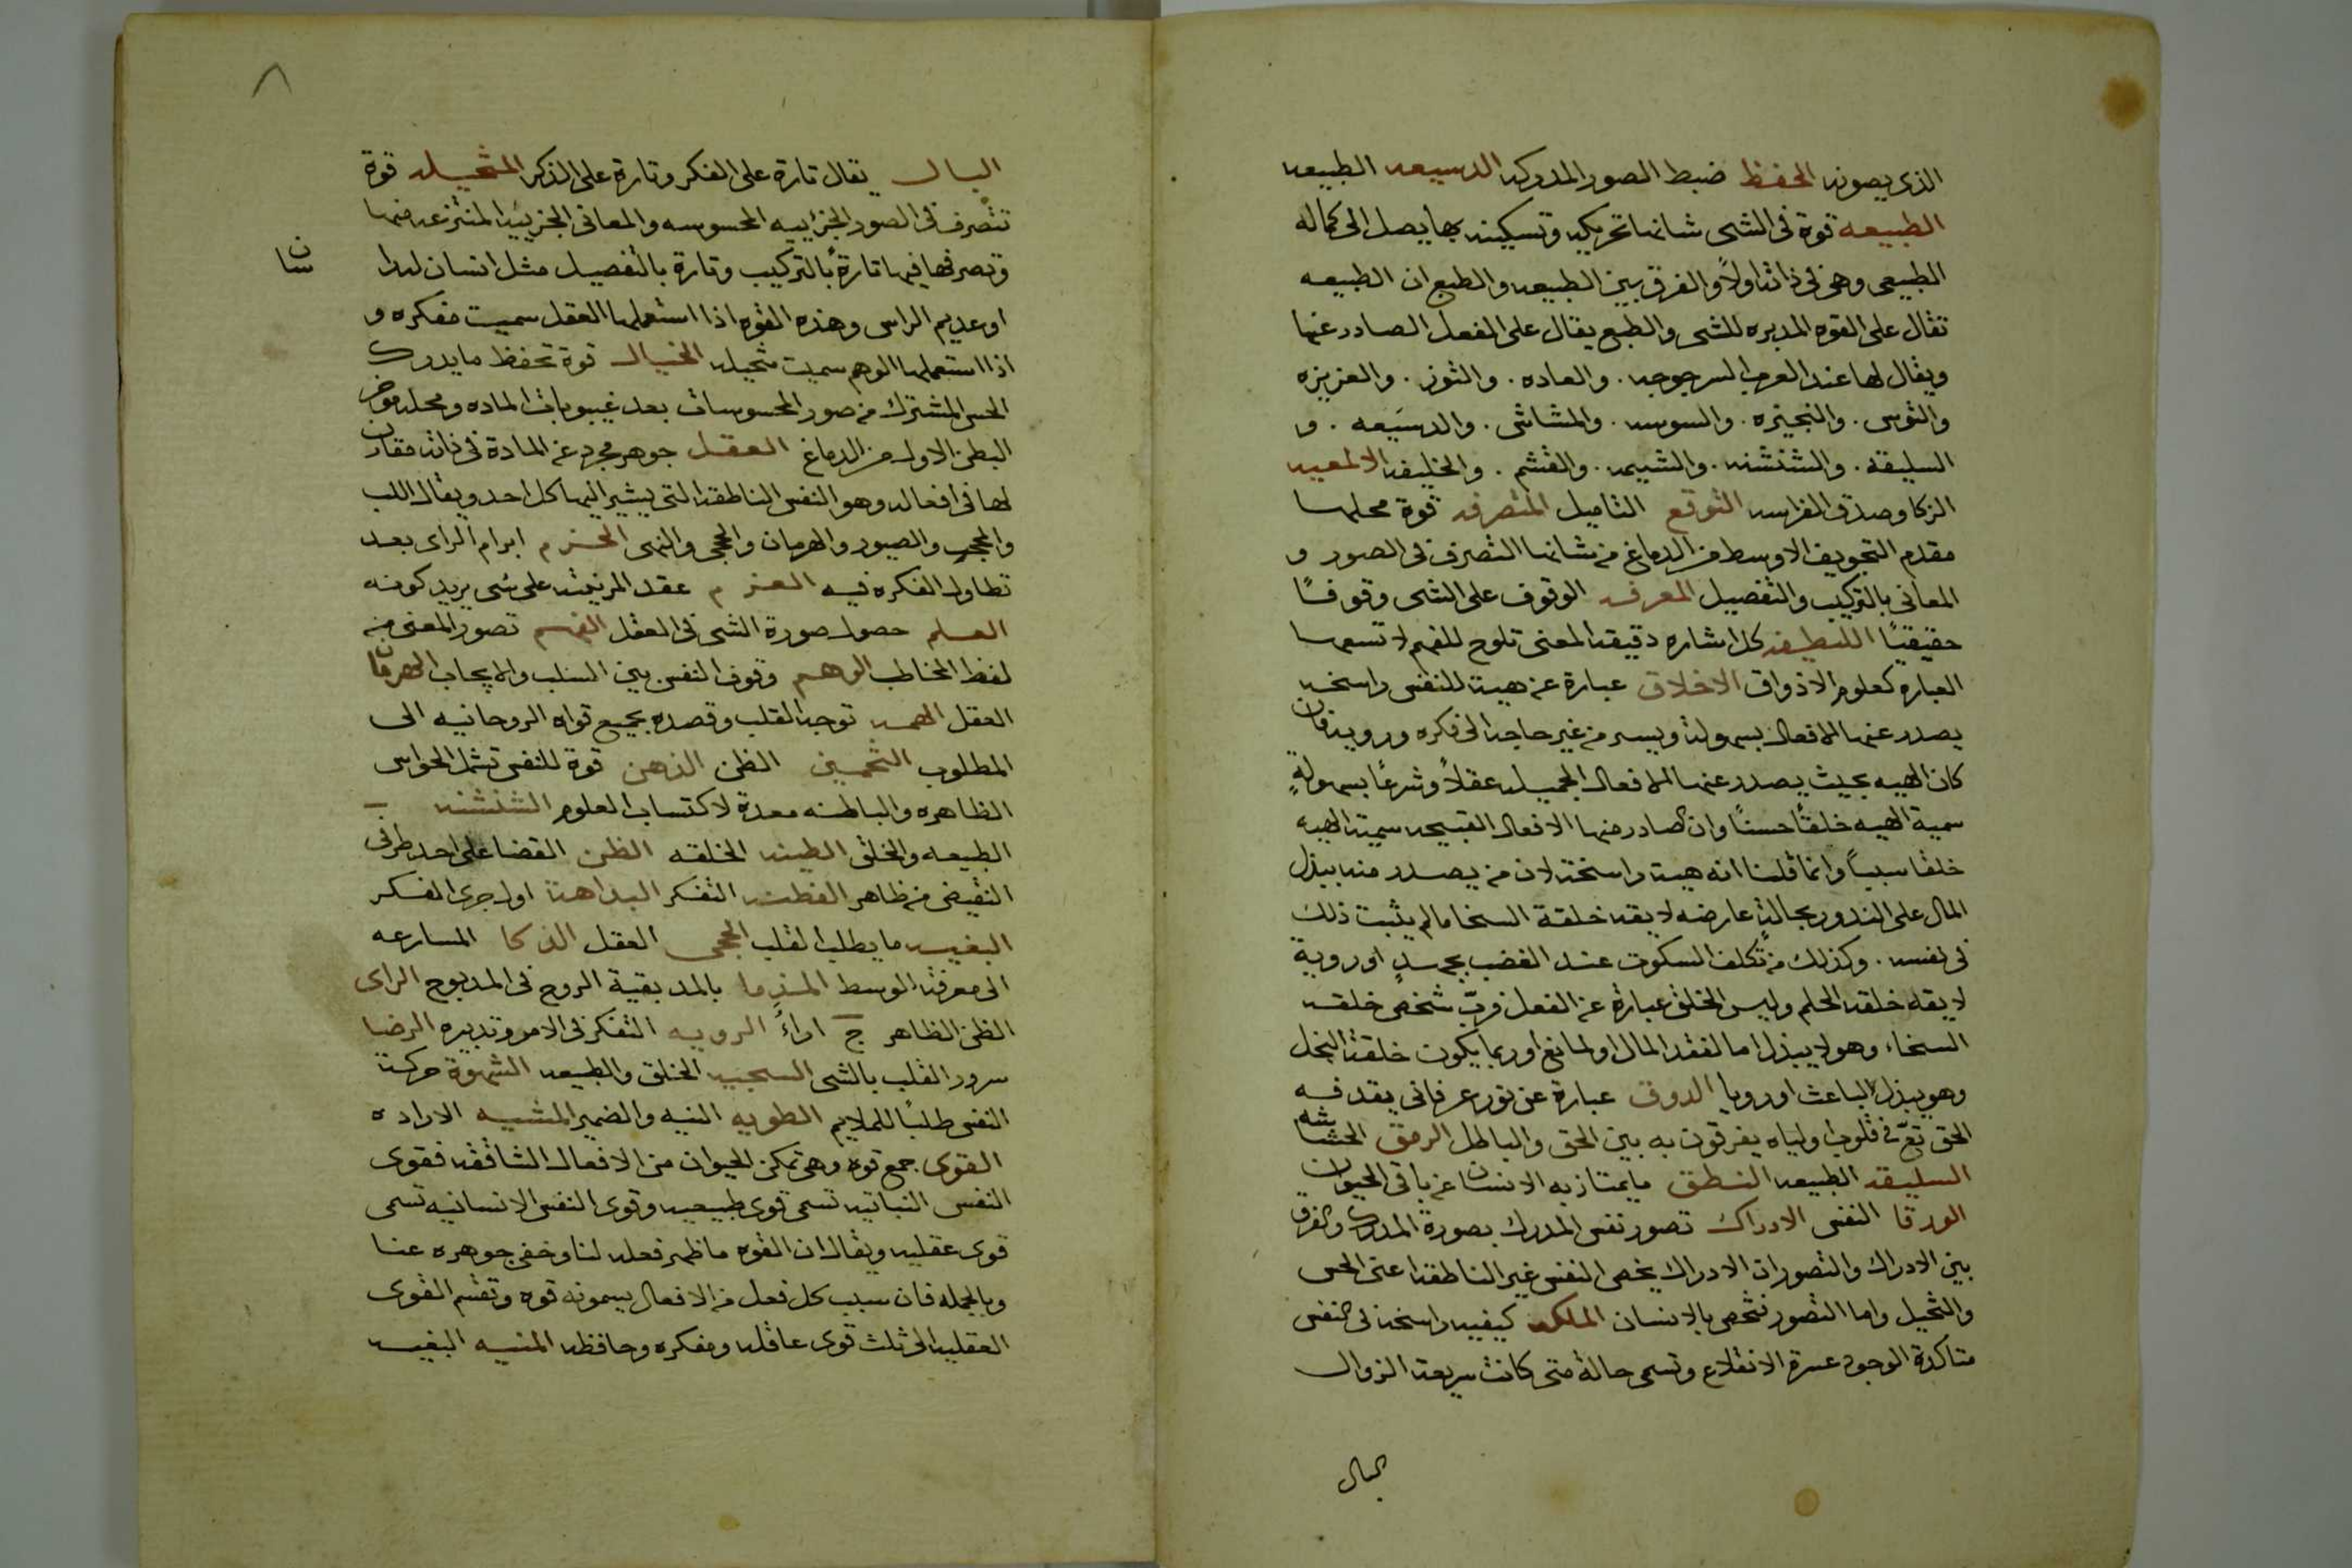 الذى يصونه الحفظ ضبط الصور المدركه الدسيعه الطبيعه
الطبيعه قوة فى الشى شانها تحريكه وتسكينه بها يصل الى كماله
الطبيعى وهى فى ذاته اولاً والفرق بين الطبيعه والطبع ان الطبيعه
تقال على القوه المدبره للشى والطبع يقال على الفعل الصادر عنها
ويقال لها عند العرب السرجوجه . والعاده . والتوز . والغريزه
والتوس . والنحيزه . والسوسه . والمشاشى . والدسَيعه . و
السليقه . والشنشنه . والشيمه . والقشم . والخليفه الالمعيه
الزكا وصدق الفراسه التوقع التاميل المتصرفه قوة محلها
مقدم التجويف الاوسط من الدماغ من شانها التصرف فى الصور و
المعانى بالتركيب والتفصيل المعرفه الوقوف على الشى وقوفًا
حقيقيًا اللطيفه كل اشاره دقيقه المعنى تلوح للفهم لا تسعها
العباره كعلوم الاذواق الاخلاق عبارة عن هيئة للنفس راسخه
يصدر عنها الافعال بسهولة ويسر من غير حاجه الى فكره ورويه فان
كان الهيه بحيث يصدر عنها الافعال الجميله عقلاً وشرعًا بسهولةٍ
سمية الهيه خلقًا حسنًا وان كان صادر منها الافعال القبيحه سميت الهيه
خلقا سيئاً وانما قلنا انه هيئة راسخة لان من يصدر منه ببذل
المال على الندور بحالةٍ عارضه لا يقه خلقة السخا مالم يثبت ذلك
فى نفسه . وكذلك من تكلف السكوت عند الغضب بجهدٍ او روية
لا يقه خلقه الحلم وليس الخلق عبارة عن الفعل فربّ شخص خلقه
السخاء وهو لا يبذل اما لفقد المال او لمانع وربما يكون خلقة البخل
وهو يبذل لباعث او رويا الذوق عبارة عن نور عرفانى يقدفه
الحق تعٓ فى قلوب اوليائه يفرقون به بين الحق والباطل الرمق الحشاشه
السليقه الطبيعه النطق ما يمتاز به الانسان عن باقى الحيوان
الورقا النفس الادراك تصور نفس المدرك بصورة المدرك والفرق
بين الادراك والتصور ان الادراك يخص النفس غير الناطقه اعنى الحس
والتخيل واما التصور فتخص بالانسان الملكه كيفيه راسخه فى النفس
متاكدة الوجود عسرة الانقلاع وتسمى حالة متى كانت سريعة الزوال
البال
٨
البال يقال تارة على الفكر وتارة على الذكر المتخيله قوة
تتصرف فى الصور الجزئييه المحسوسه والمعانى الجزييه المنتزعه منها
وتصرفها فيها تارةً بالتركيب وتارة بالتفصيل مثل انسان له راسان
او عديم الراس وهذه القوه اذا استعملها العقل سميت مفكره و
اذا استعملها الوهم سميت متخيله الخيال قوة تحفظ ما يدرك
الحس المشترك من صور المحسوسات بعد غيبوبات الماده ومحله موخر
البطن الاول من الدماغ العقل جوهر مجرد عن المادة فى ذاته مقارن
لها فى افعاله وهو النفس الناطقه التى يشير اليها كل احد ويقال اللب
والحجر والصيور والهرمان والحجى والنهى الحزم ابرام الراى بعد
تطاول الفكره فيه العزم عقد المرنيته على شى يريد كونه
العلم حصول صورة الشى فى العقل الفهم تصور المعنى من
لفظ المخاطب الوهم وقوف النفس بين السلب والايجاب الهرمان
العقل الهمه توجه القلب وقصده بجميع قواه الروحانيه الى
المطلوب التخمين الظن الذهن قوة للنفس تشمل الحواس
الظاهره والباطنه معدة لاكتساب العلوم الشنشنه
الطبيعه والخلق الطينه الخلقه الظن القضا على احد طرفى
النقيض من ظاهر الفطنه التفكر البداهة اول جرى الفكر
البغيه ما يطلبه القلب الحجى العقل الذكا المسارعه
الى معرفة الوسط المذما بالمد بقية الروح فى المذبوح الراى
الظن الظاهر ج اراءً الرويه التفكر فى الامر وتدبيره الرضا
سرور القلب بالشى السجيه الخلق والطبيعه الشهوة حركة
النفس طلبًا للملايم الطويه النيه والضمير المشيه الاراده
القوى جمع قوه وهى تمكن الحيوان من الافعال الشاقه فقوى
النفس النباتيه تسمى قوى طبيعيه وقوى النفس الانسانيه تسمى
قوى عقليه ويقال ان القوه ما ظهر فعله لنا وخفى جوهره عنا
وبالجمله فان سبب كل فعل من الافعال يسمونه قوه وتقسم القوى
العقليه الى ثلث قوى عاقله ومفكره وحافظه المنيه البغيه